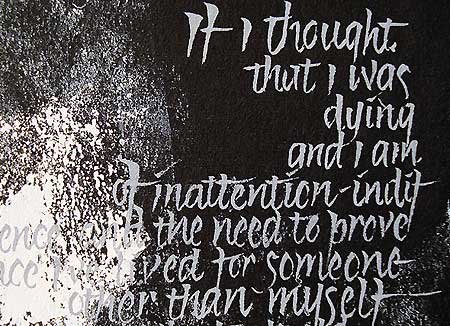 If I thought
that I was
dying
and I am
of inattention-indif
ence and the need to prove
ace I've lived for someone
other than myself